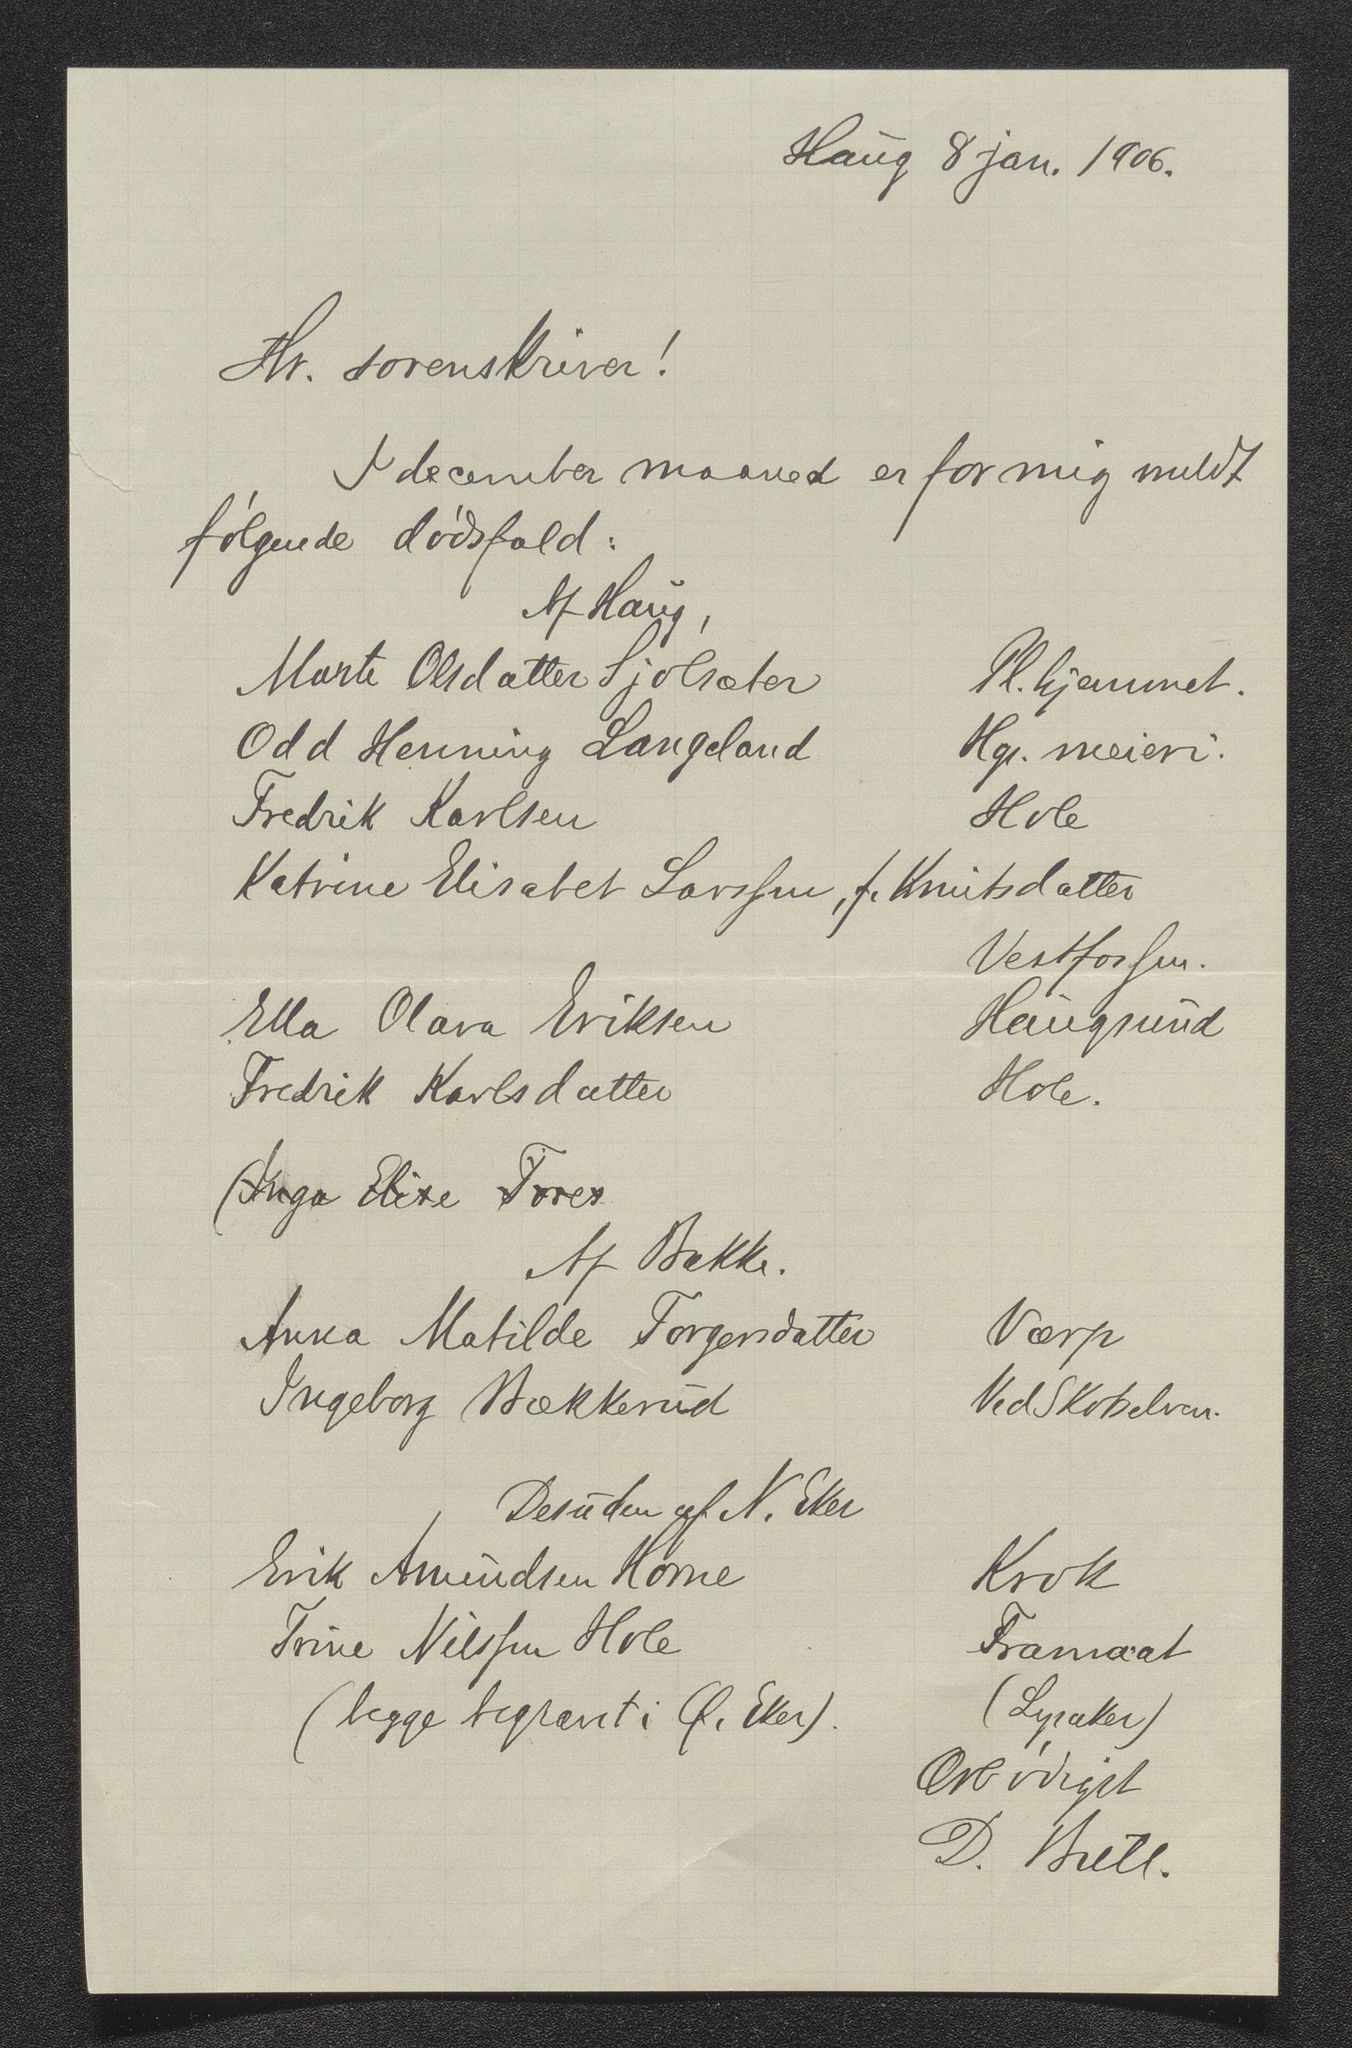 Haug 8 jan. 1906.
Hr. sorenskriver!
I december maaned er for mig meldt
følgende dødsfald:
Af Haug,
Marte Olsdatter Sjolsæter Pl. hjemmet.
Odd Henning Langeland Hgs. meieri.
Fredrik Karlsen Hole
Katrine Elisabet Larssen, f. Knutsdatter
Vestfossen.
Ella Olava Eriksen Haugsund
Fredrik Karlsdatter Hole.
(Inga Elise Tores
Af Bakke.
Anna Matilde Torgersdatter Værp
Ingeborg Bækkerud Ved Skotselven.
Desuden af N. Eker
Erik Amundsen Horne Krok
Trine Nilssen Hole Framaat
(begge begravet i Ø. Eker). (Lysaker)
Ærbødigst
D.